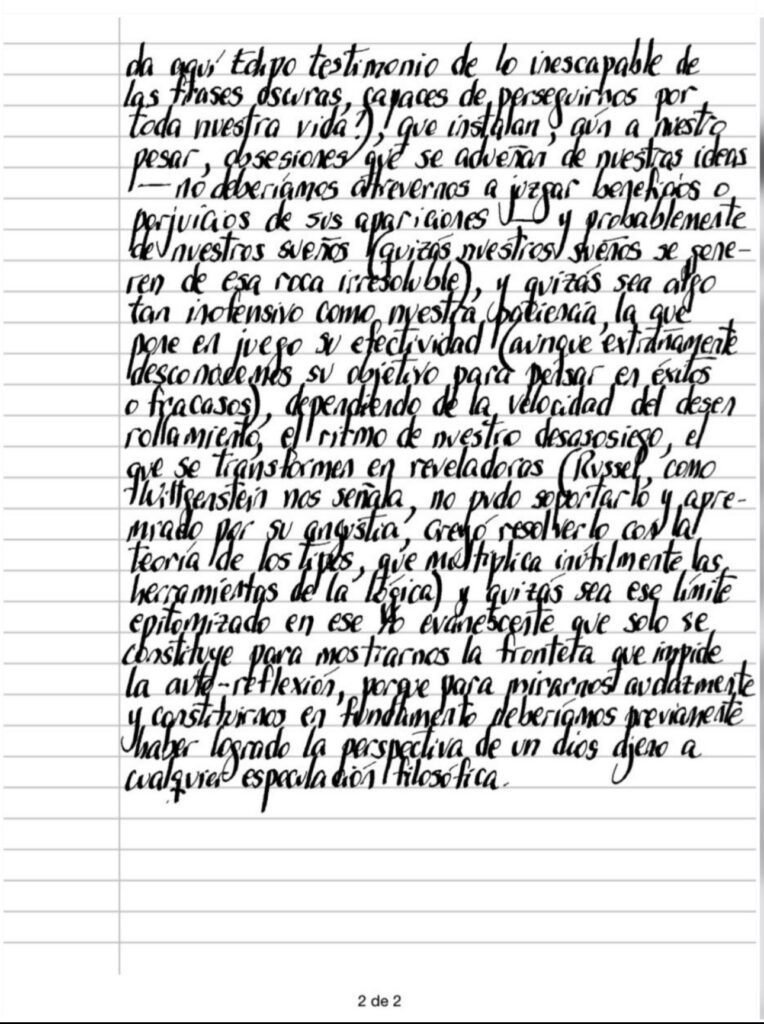 da aquí Edipo testimonio de lo inescapable de
las frases oscuras, capaces de perseguirnos por
toda nuestra vida?), que instalan, aún a nuestro
pesar, obsesiones que se adueñan de nuestras ideas
— no deberíamos atrevernos a juzgar beneficios o
perjuicios de sus apariciones — y probablemente
de nuestros sueños (quizás nuestros sueños se gene-
ren de esa roca irresoluble), y quizás sea algo
tan inofensivo como nuestra paciencia, la que
pone en juego su efectividad (aunque extrañamente
desconocemos su objetivo para pensar en éxitos
o fracasos), dependiendo de la velocidad del desen
rollamiento, el ritmo de nuestro desasosiego, el
que se transformen en reveladoras (Russel, como
Wittgenstein nos señala, no pudo soportarlo y apre-
miado por su angustia, creyó resolverlo con la
teoría de los tipos, que multiplica inútilmente las
herramientas de la lógica) y quizás sea ese límite
epitomizado en ese Yo evanescente que solo se
constituye para mostrarnos la frontera que impide
la auto-reflexión, porque para mirarnos audazmente
y constituirnos en fundamento deberíamos previamente
haber logrado la perspectiva de un dios ajeno a
cualquier especulación filosófica.
2 de 2